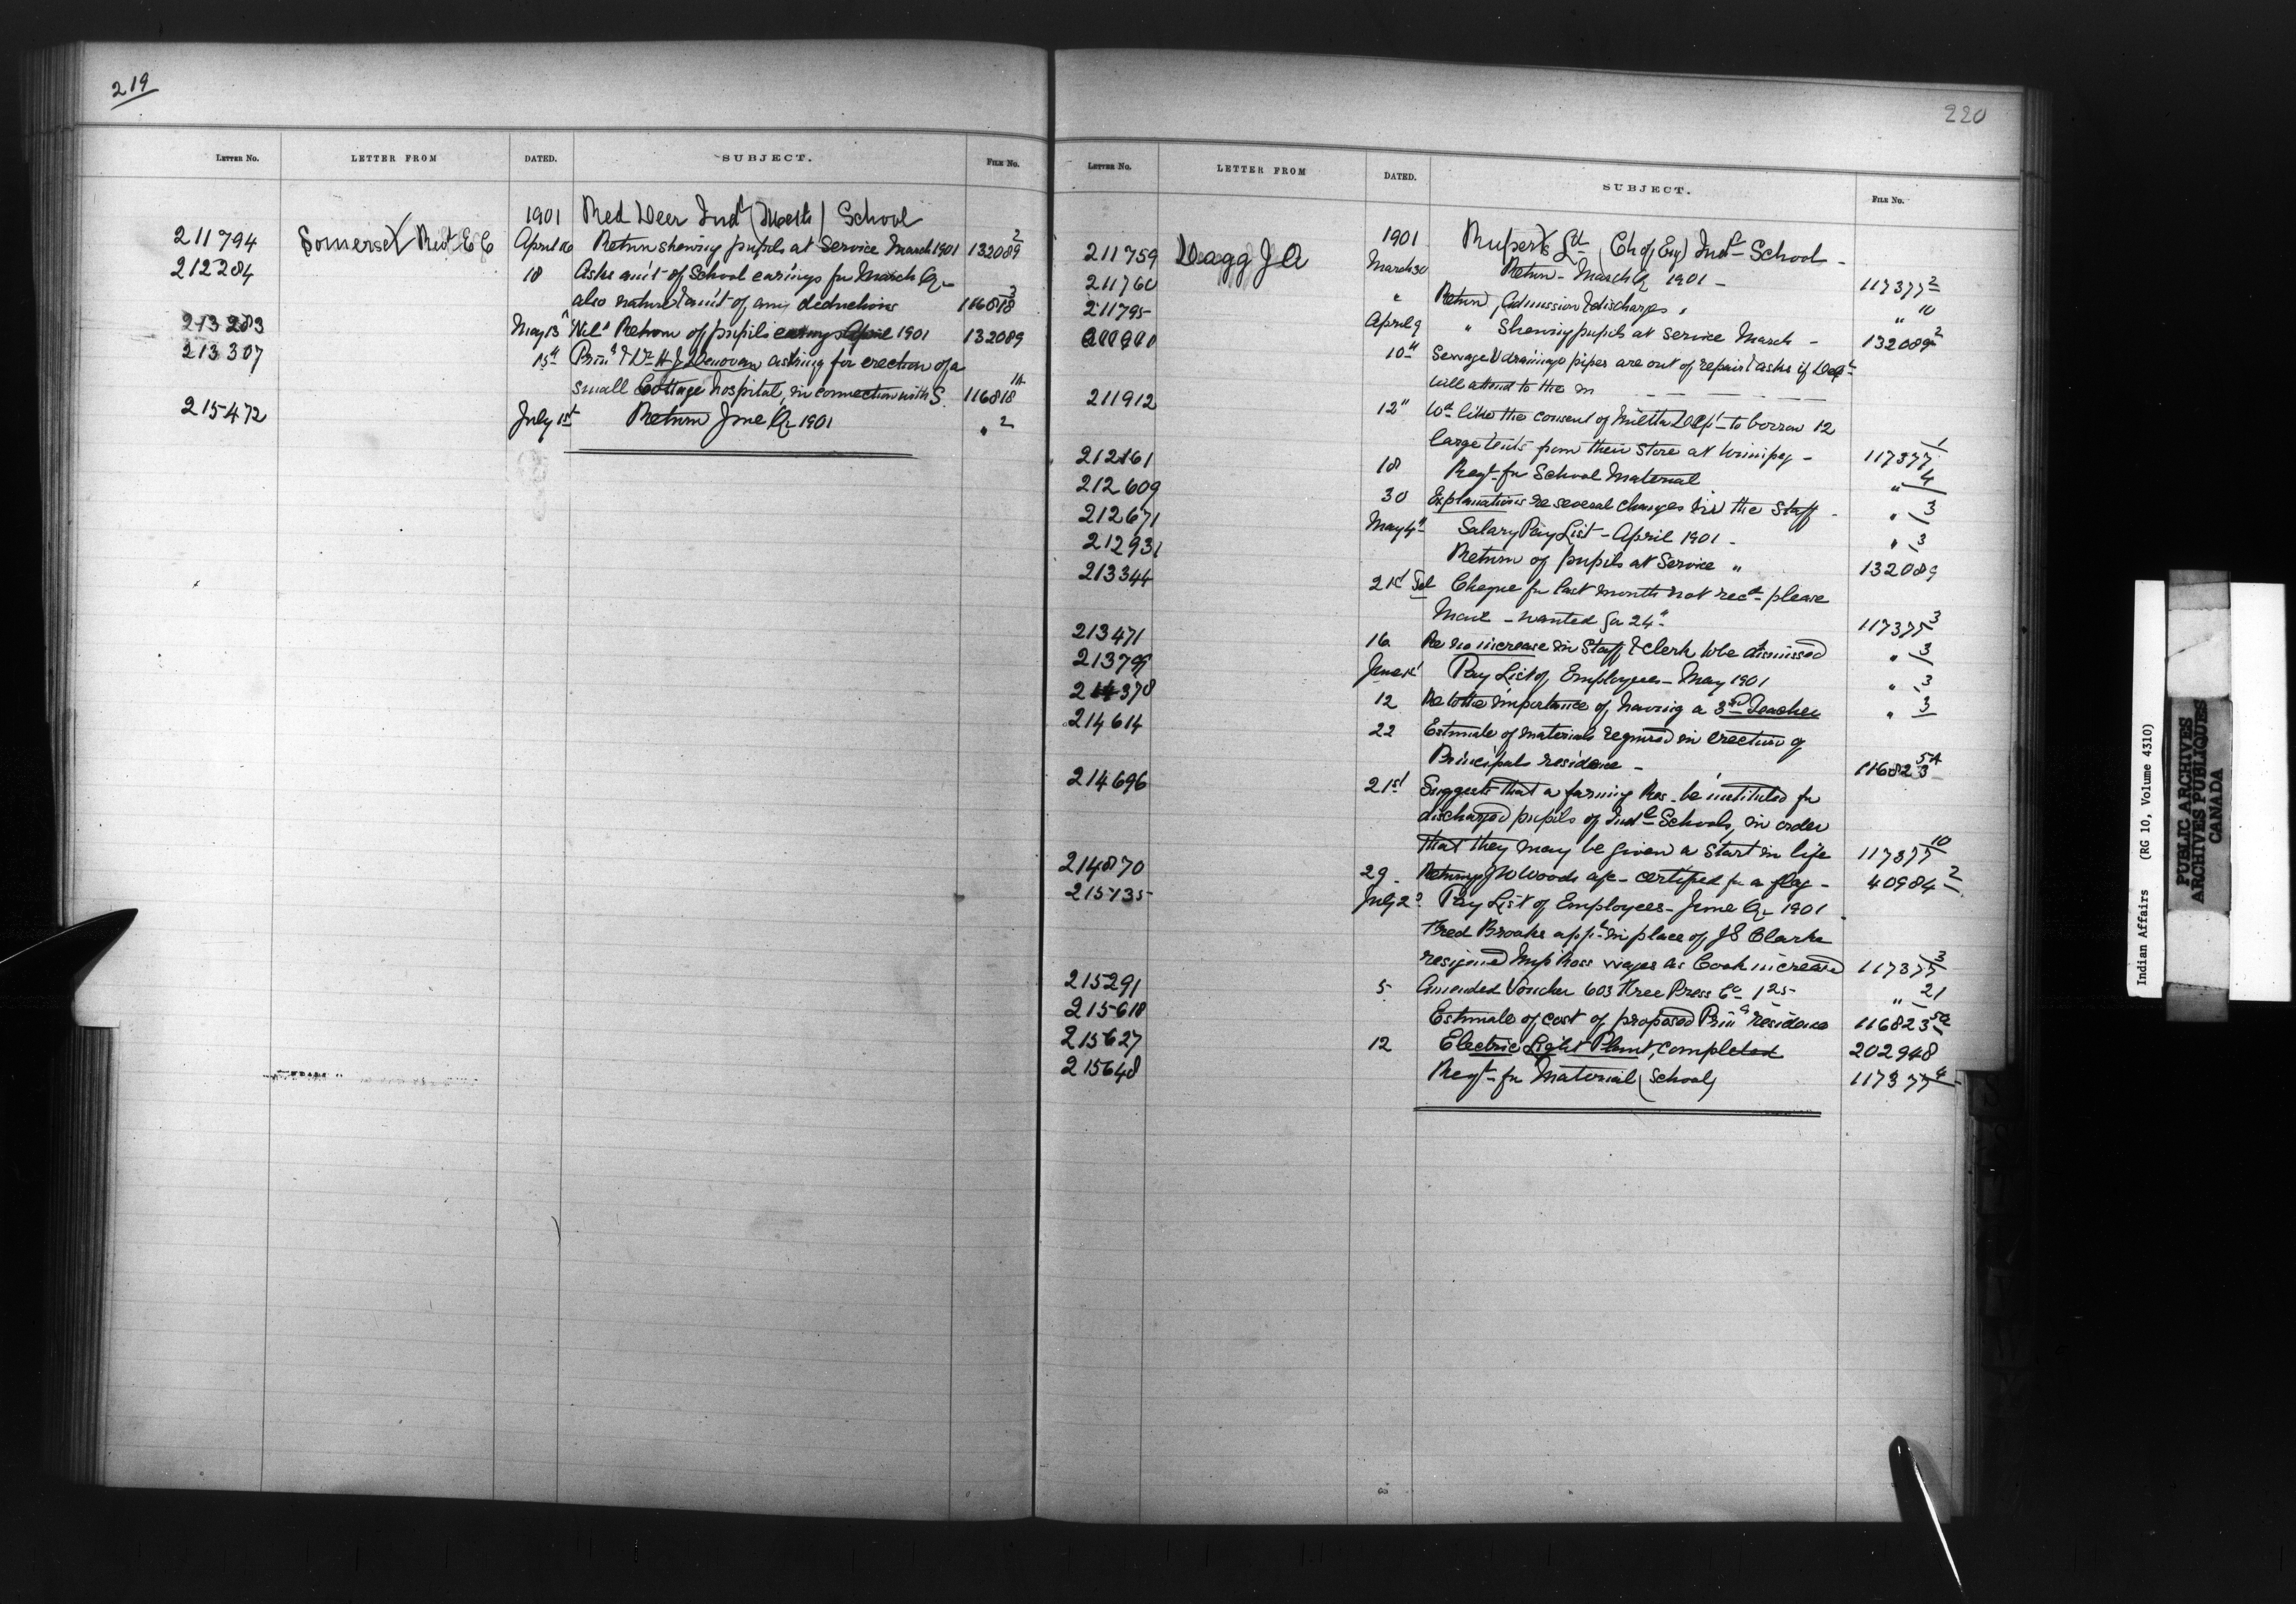 219
LETTER NO. LETTER FROM DATED. SUBJECT. FILE NO.
1901 Red Deer Indl (Meth) School
211794 Somerset Revd E C April 16 Return shewing pupils at Service March 1901 132089 2
212284 18 Asks am't of School earings for March Qr
also nature & am't of any deductions 116818 3
213283 May 13 "Nil" Return of pupils earnings April 1901 132089
213307 15th Prinl & Dr H J Denovan asking for erection of a
small Cottage hospital, in connection with S. 116818 1A
215472 July 1st Return June Qr 1901 " 2
220
LETTER NO. LETTER FROM DATED. SUBJECT. FILE NO.
1901 Ruperts Ld (Ch of Eng) Indl School -
211759 Dagg J A March 30 Return - March Qr 1901 - 117377 2
211760 " Return, Admission & discharges " " 10
211795 April 9 " Shewing pupils at Service March - 132089 2
10th Sewage & drainage pipes are out of repair & asks if Dept
will attend to the m
211912 12" Wd like the consent of Militia Dept to borrow 12
large tents from their Store at Winnipeg - 117377 1
212161 18 Reqt for School Material " 4
212609 30 Explanations re several changes in the Staff - " 3
212671 May 4th Salary Pay List - April 1901 - " 3
212931 Return of pupils at Service " 132089
213344 21st Tel Cheque for last month not recd please
Mail - wanted for 24th 117377 3
213471 16 Re no increase in Staff & Clerk to be dismissed " 3
213795 June 1st Pay List of Employees - May 1901 " 3
214378 12 Re to the importance of having a 3rd Teacher " 3
214614 22 Estimate of materials required in erection of
Principals residence - 116823 5A
214696 21st Suggests that a farming Res. be instituted for
discharged pupils of Indl Schools, in order
that they may be given a Start in life 117377 10
214870 29 Returns J W Woods a/c - certified for a flag - 40984 2
215135 July 2d Pay List of Employees - June Qr 1901
Fred Brooks appt in place of J E Clarke
resigned Ross wages as Cook increased 117377 3
215291 5 Amended Voucher 603 Free Press Co 1 25 " 21
215618 Estimate of cost of proposed Prinls residence 116823 5A
215627 12 Electric Light Plant, completed 202948
215648 Reqt for Material (School) 117377 4
Indian Affairs (RG 10, Volume 4310)
PUBLIC ARCHIVES
ARCHIVES PUBLIQUES
CANADA